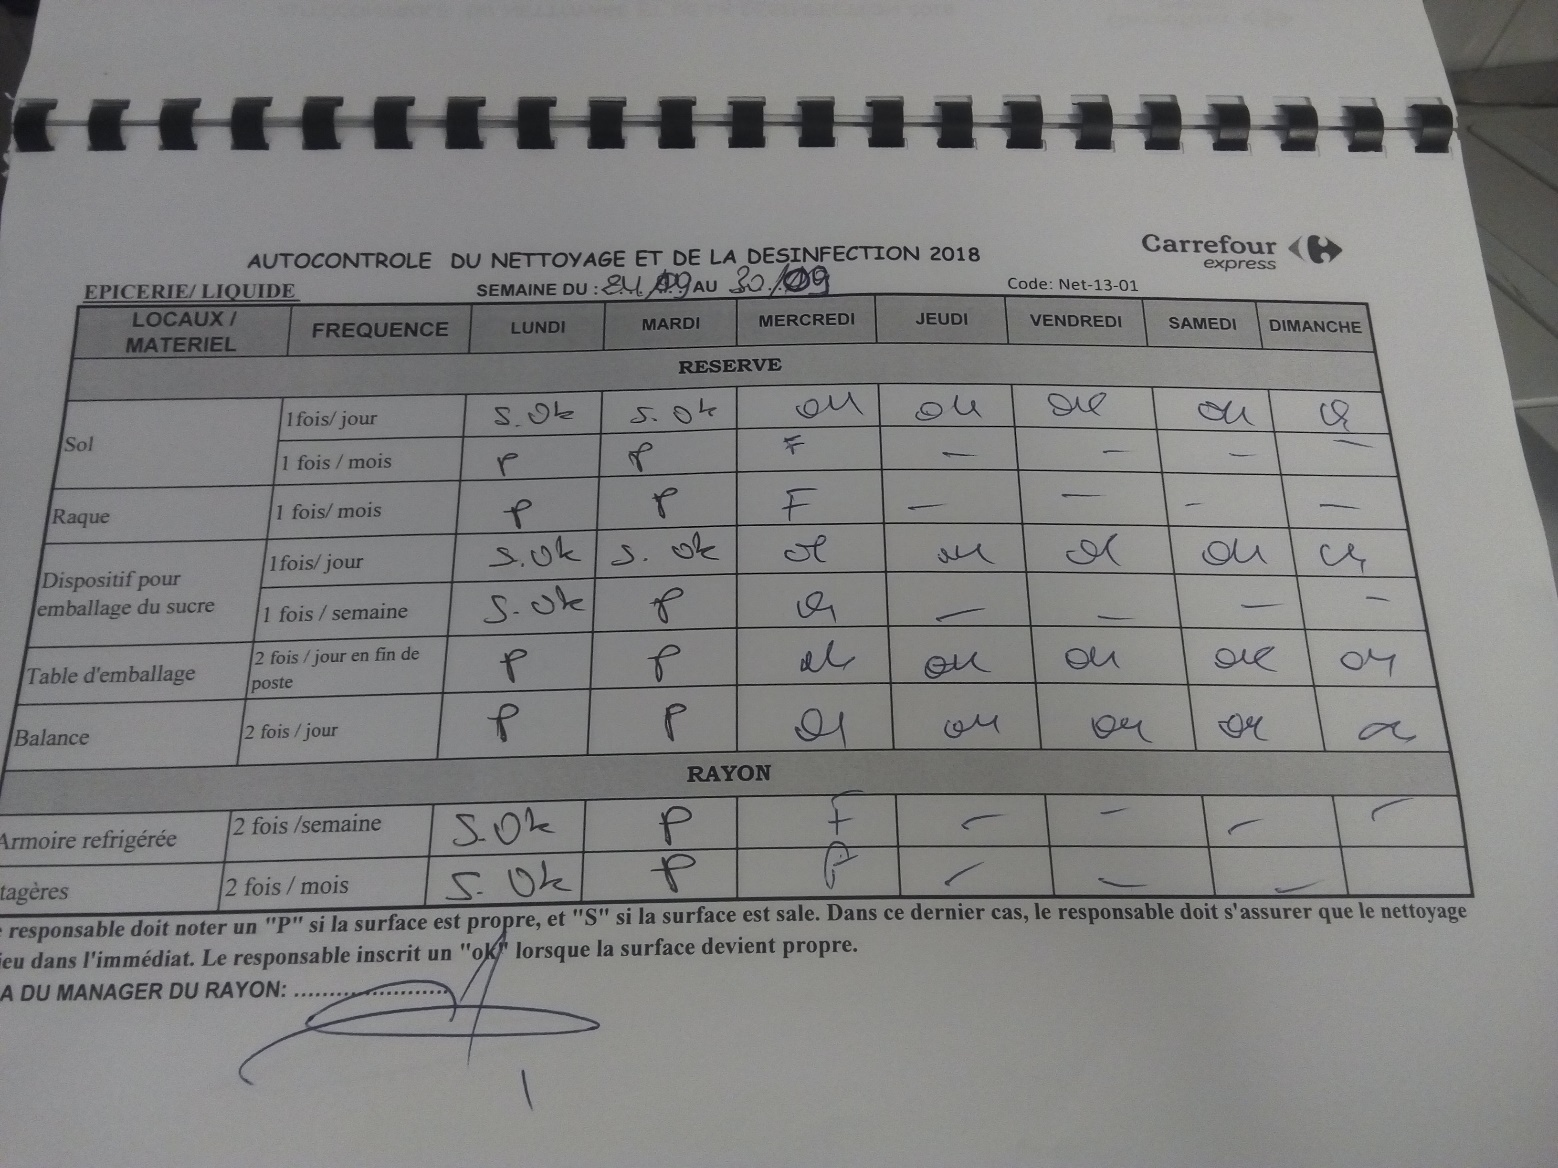 AUTOCONTROLE DU NETTOYAGE ET DE LA DESINFECTION 2018
Carrefour
express
EPICERIE/ LIQUIDE SEMAINE DU : 24/09 AU 30/09 Code: Net-13-01
LOCAUX / MATERIEL FREQUENCE LUNDI MARDI MERCREDI JEUDI VENDREDI SAMEDI DIMANCHE
RESERVE
Sol
1fois/ jour S.Ok S.Ok
1 fois / mois P P F — — — —
Raque 1 fois/ mois P P F — — — —
Dispositif pour emballage du sucre
1fois/ jour S.Ok S.Ok
1 fois / semaine S.Ok P — — — —
Table d'emballage 2 fois / jour en fin de poste P P
Balance 2 fois / jour P P
RAYON
Armoire refrigérée 2 fois /semaine S.Ok P F — — — —
tagères 2 fois / mois S.Ok P — — —
responsable doit noter un "P" si la surface est propre, et "S" si la surface est sale. Dans ce dernier cas, le responsable doit s'assurer que le nettoyage
ieu dans l'immédiat. Le responsable inscrit un "ok" lorsque la surface devient propre.
A DU MANAGER DU RAYON: ........................